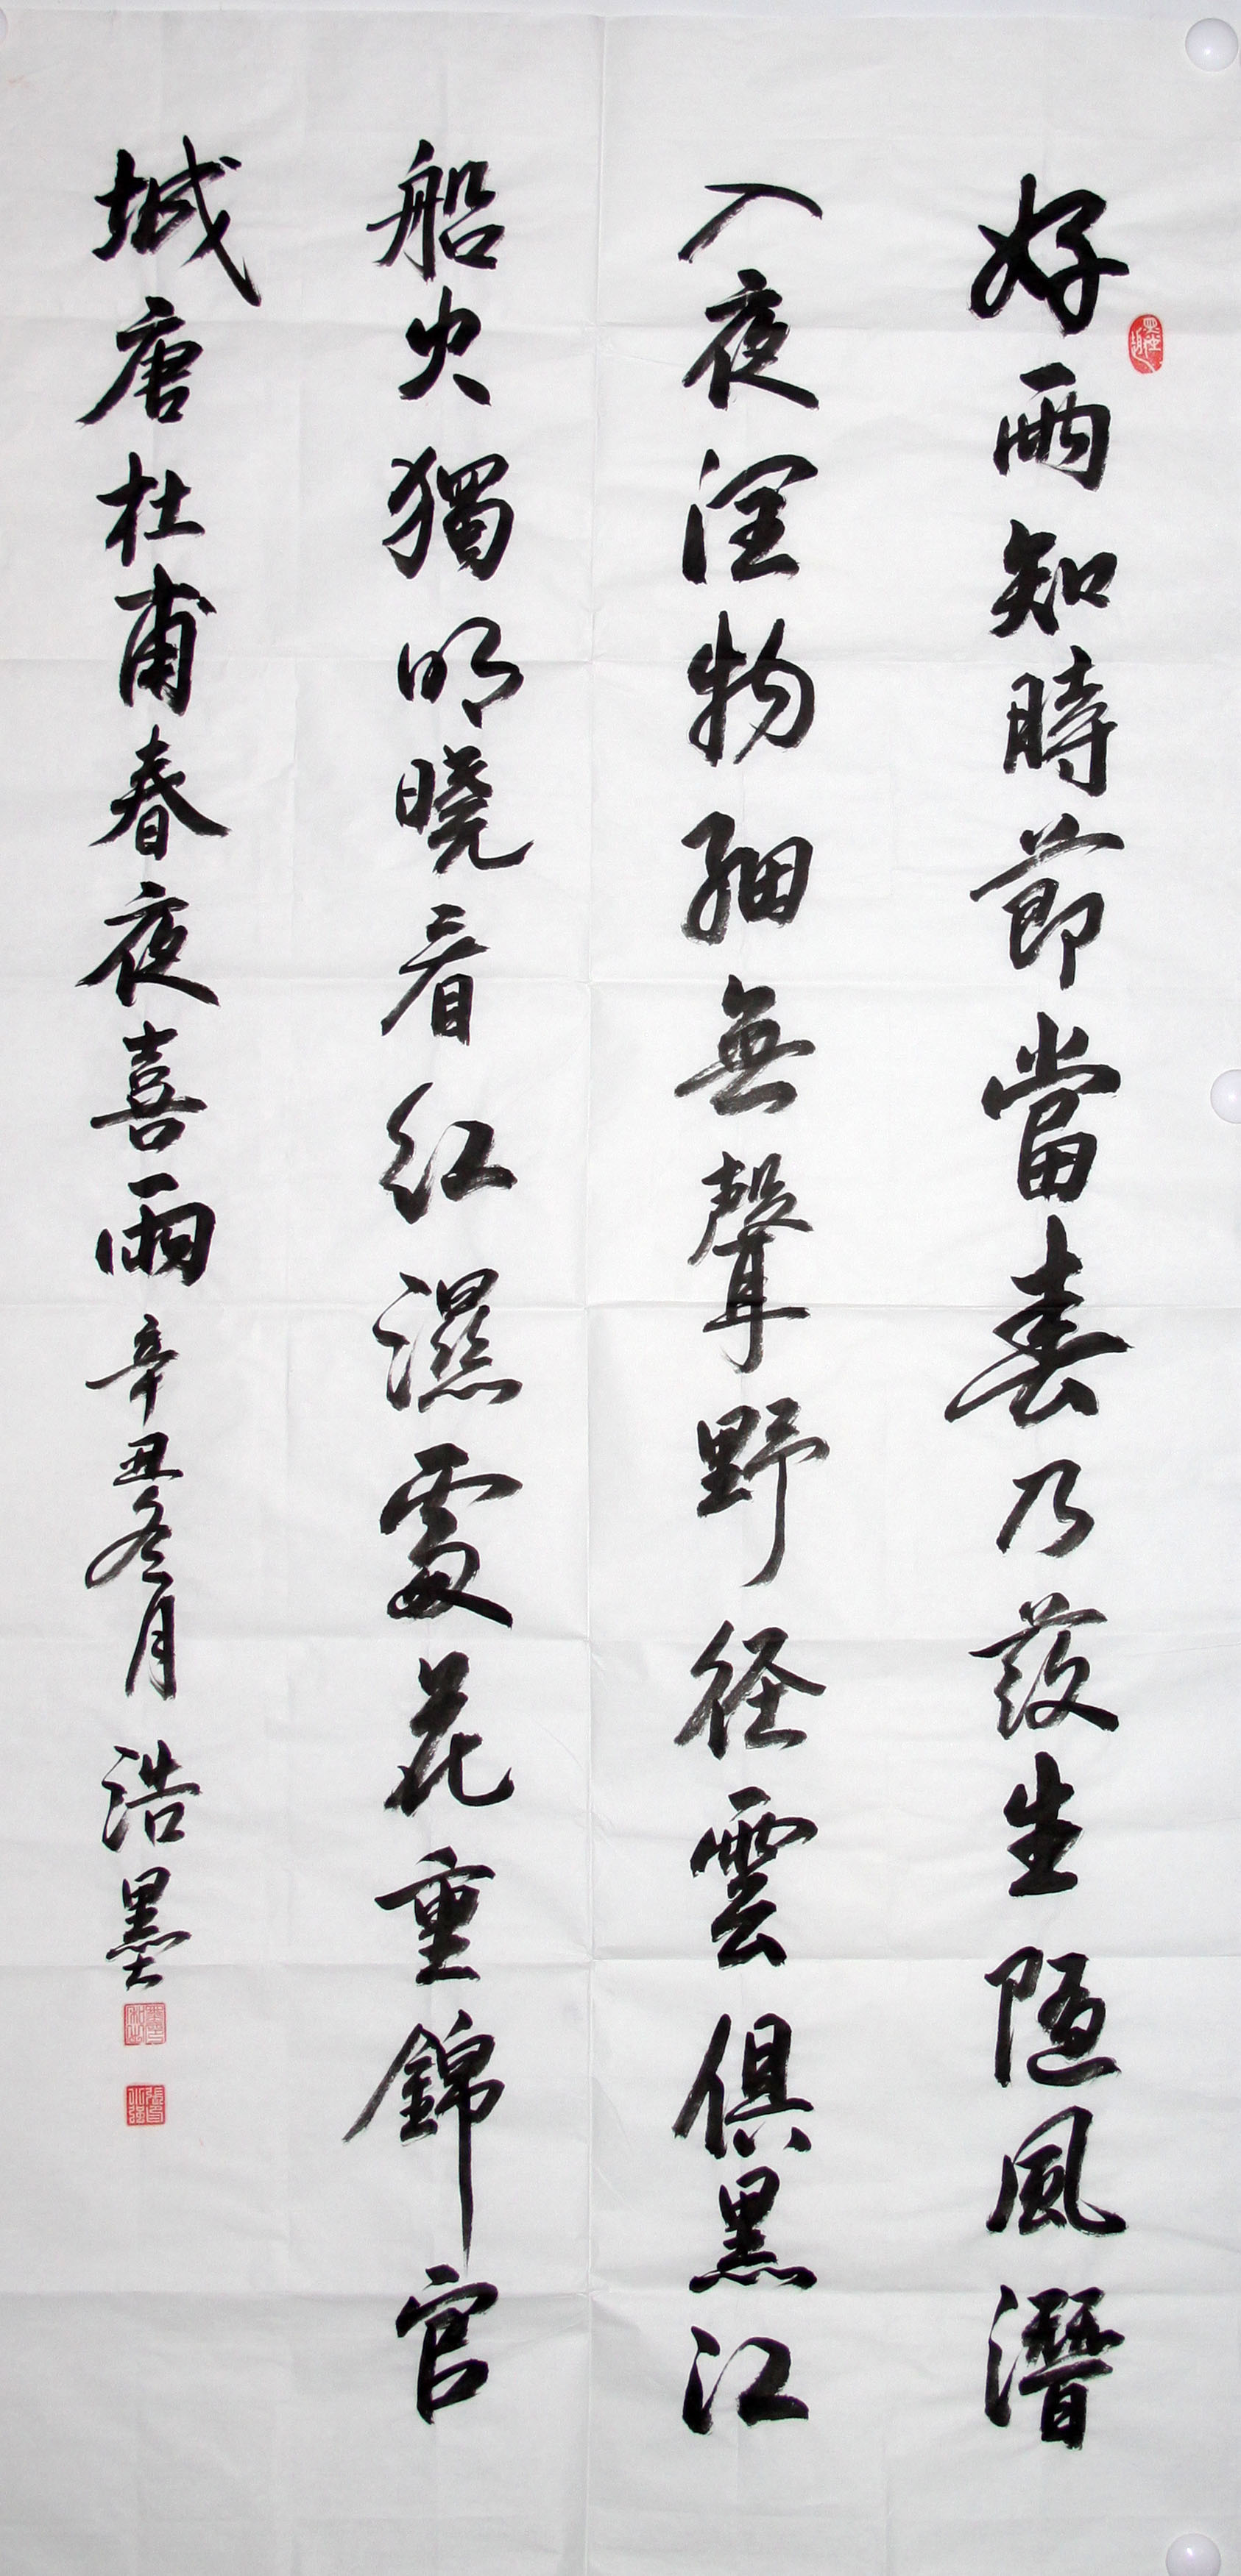 好雨知時節當春乃發生隨風潛
入夜潤物細無聲野徑雲俱黑江
船火獨明曉看紅濕處花重錦官
城唐杜甫春夜喜雨辛丑冬月浩墨